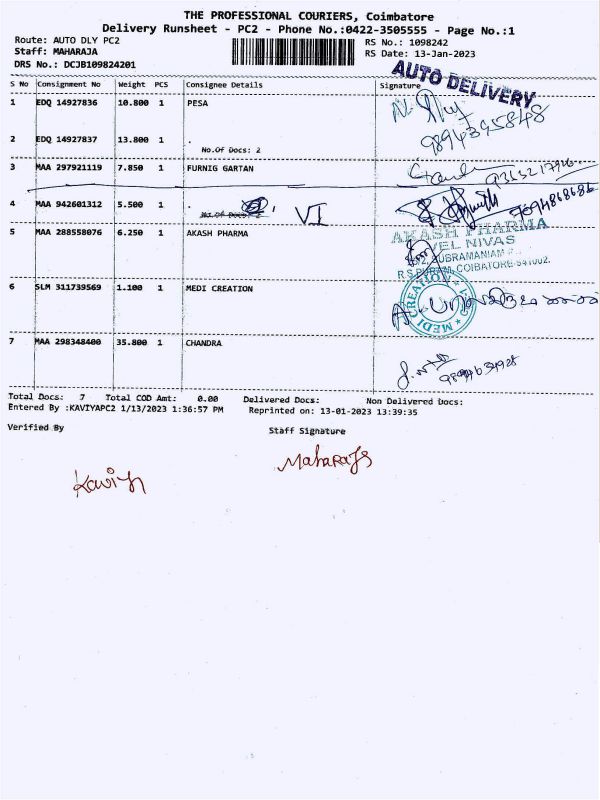 THE PROFESSIONAL COURIERS, Coimbatore
Delivery Runsheet - PC2 - Phone No.:0422-3505555 - Page No.:1
Route: AUTO DLY PC2
RS No.: 1098242
Staff: MAHARAJA
RS Date: 13-Jan-2023
DRS No.: DCJB109824201
AUTO DELIVERY
S No Consignment No Weight PCS Consignee Details Signature
1 EDQ 14927836 10.800 1 PESA
9894395848
2 EDQ 14927837 13.800 1 .
No.Of Docs: 2
3 MAA 297921119 7.850 1 FURNIG GARTAN
4 MAA 942601312 5.500 1 . VI
No.Of Docs: 2
9094868686
5 MAA 288558076 6.250 1 AKASH PHARMA
AKASH PHARMA
VEL NIVAS
SUBRAMANIAM
R.S.PURAM, COIBATORE-641002.
6 SLM 311739569 1.100 1 MEDI CREATION
MEDI CREATION
7 MAA 298348400 35.800 1 CHANDRA
Total Docs: 7 Total COD Amt: 0.00 Delivered Docs: Non Delivered Docs:
Entered By :KAVIYAPC2 1/13/2023 1:36:57 PM Reprinted on: 13-01-2023 13:39:35
Verified By Staff Signature
Kaviya
Maharaja